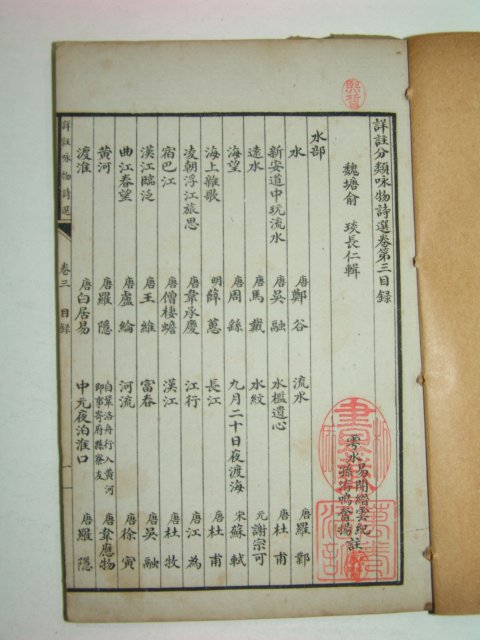 詳註分類咏物詩選卷第三目録
魏塘俞 琰長仁輯
易開縉雲紀
雩水孫洊鳴奮揚註
水部
水 唐鄭谷 流水 唐羅鄴
新安道中玩流水 唐吳融 水檻遣心 唐杜甫
遠水 唐馬戴 水紋 元謝宗可
海望 唐周繇 九月二十日夜渡海 宋蘇軾
海上雜歌 明薛蕙 長江 唐杜甫
凌朝浮江旅思 唐韋承慶 江行 唐江為
宿巴江 唐僧棲蟾 漢江 唐杜牧
漢江臨泛 唐王維 富春 唐吳融
曲江春望 唐盧綸 河流 唐徐寅
黄河 唐羅隱 自鞏洛舟行入黄河即事寄府縣寮友 唐韋應物
渡淮 唐白居易 中元夜泊淮口 唐羅隱
詳註咏物詩選 卷三 目録 一